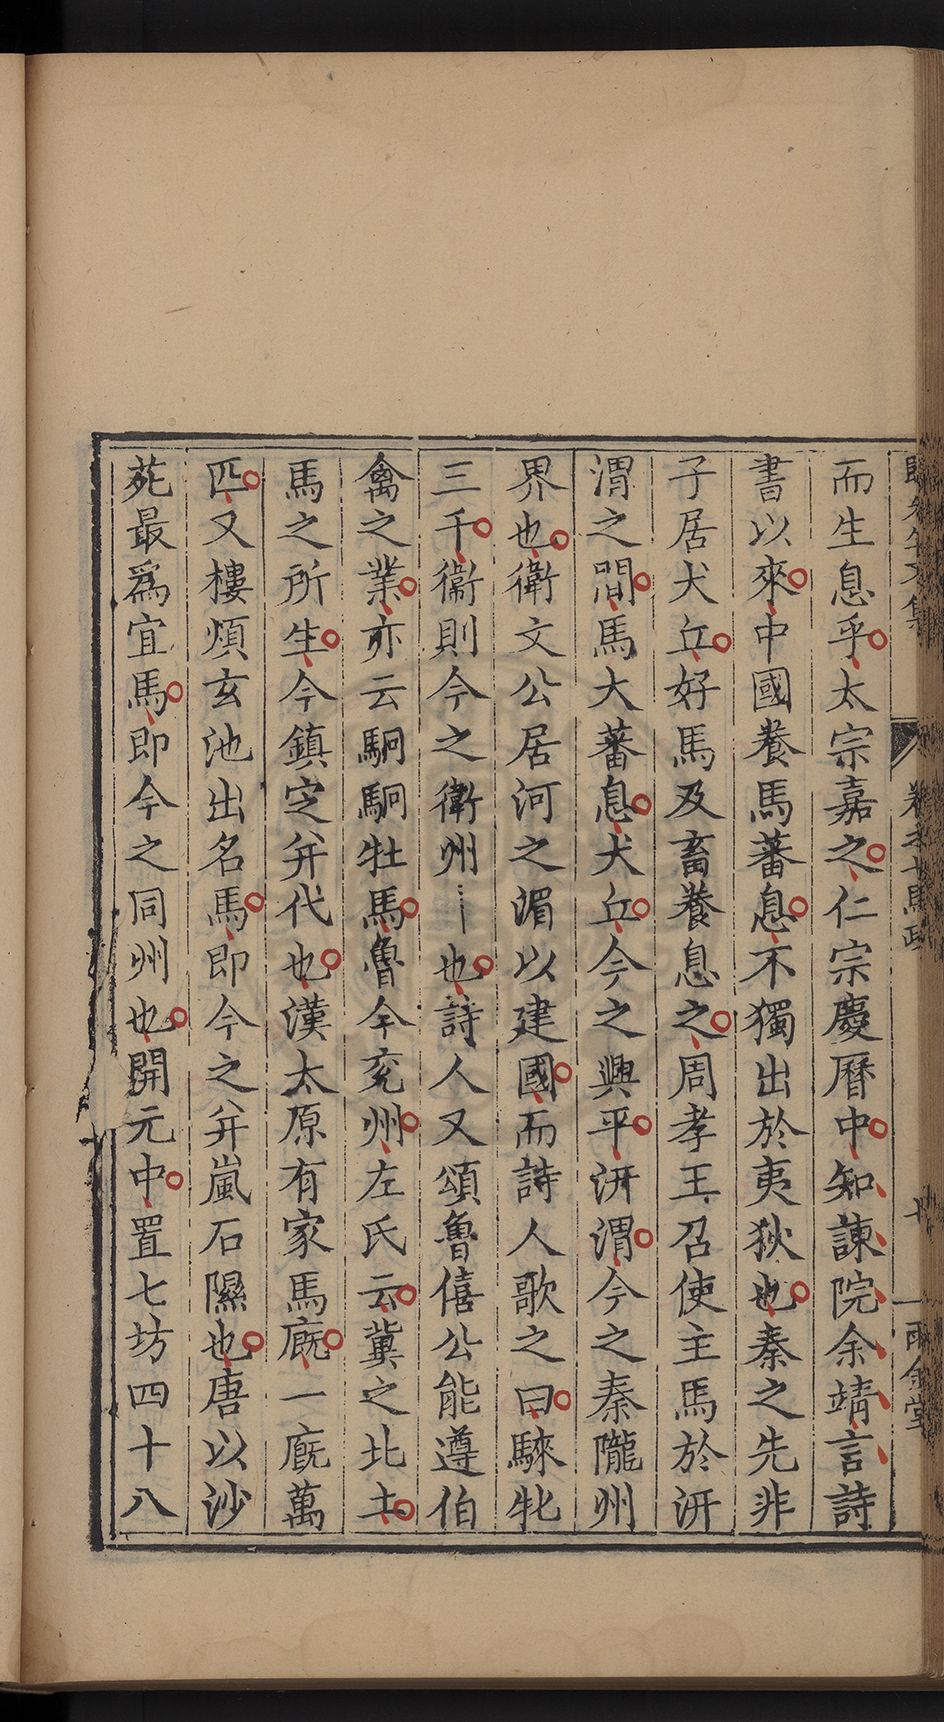 而生息乎太宗嘉之仁宗慶曆中知諫院余靖言詩
書以來中國養馬蕃息不獨出於夷狄也秦之先非
子居犬丘好馬及畜養息之周孝王召使主馬於汧
渭之間馬大蕃息犬丘今之興平汧渭今之秦隴州
界也衛文公居河之湄以建國而詩人歌之曰騋牝
三千衞則今之衛州也詩人又頌魯僖公能遵伯
禽之業亦云駉駉牡馬魯今兖州左氏云冀之北土
馬之所生今鎮定并代也漢太原有家馬廐一廐萬
匹又樓煩玄池出名馬即今之并嵐石隰也唐以沙
苑最爲宜馬即今之同州也開元中置七坊四十八